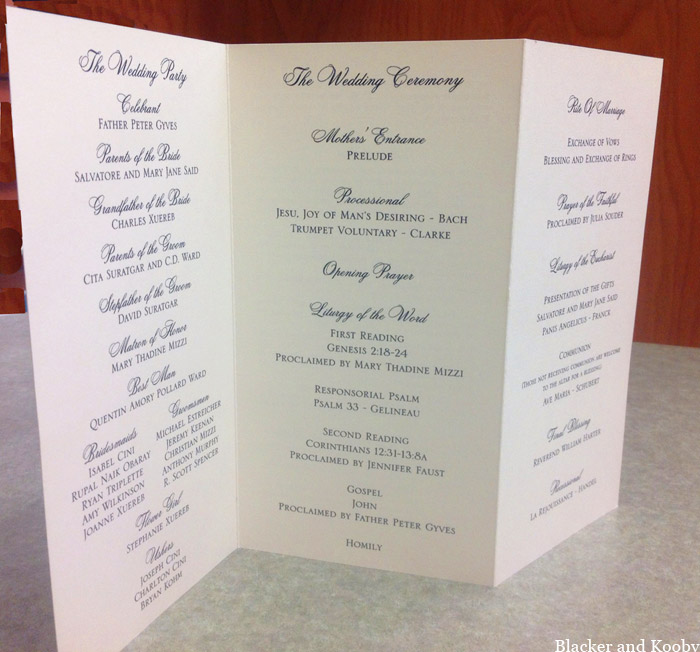 The Wedding Party
Celebrant
Father Peter Gyves
Parents of the Bride
Salvatore and Mary Jane Said
Grandfather of the Bride
Charles Xuereb
Parents of the Groom
Cita Suratgar and C.D. Ward
Stepfather of the Groom
David Suratgar
Matron of Honor
Mary Thadine Mizzi
Best Man
Quentin Amory Pollard Ward
Bridesmaids
Isabel Cini
Rupal Naik Obaray
Ryan Triplette
Amy Wilkinson
Joanne Xuereb
Groomsmen
Michael Estreicher
Jeremy Keenan
Christian Mizzi
Anthony Murphy
R. Scott Spencer
Flower Girl
Stephanie Xuereb
Ushers
Joseph Cini
Charlton Cini
Bryan Kohm
The Wedding Ceremony
Mothers' Entrance
Prelude
Processional
Jesu, Joy of Man's Desiring - Bach
Trumpet Voluntary - Clarke
Opening Prayer
Liturgy of the Word
First Reading
Genesis 2:18-24
Proclaimed by Mary Thadine Mizzi
Responsorial Psalm
Psalm 33 - Gelineau
Second Reading
Corinthians 12:31-13:8a
Proclaimed by Jennifer Faust
Gospel
John
Proclaimed by Father Peter Gyves
Homily
Rite Of Marriage
Exchange of Vows
Blessing and Exchange of Rings
Prayer of the Faithful
Proclaimed by Julia Souder
Liturgy of the Eucharist
Presentation of the Gifts
Salvatore and Mary Jane Said
Panis Angelicus - Franck
Communion
(Those not receiving communion are welcome
to the altar for a blessing)
Ave Maria - Schubert
Final Blessing
Reverend William Harter
Recessional
La Rejouissance - Handel
Blacker and Kooby